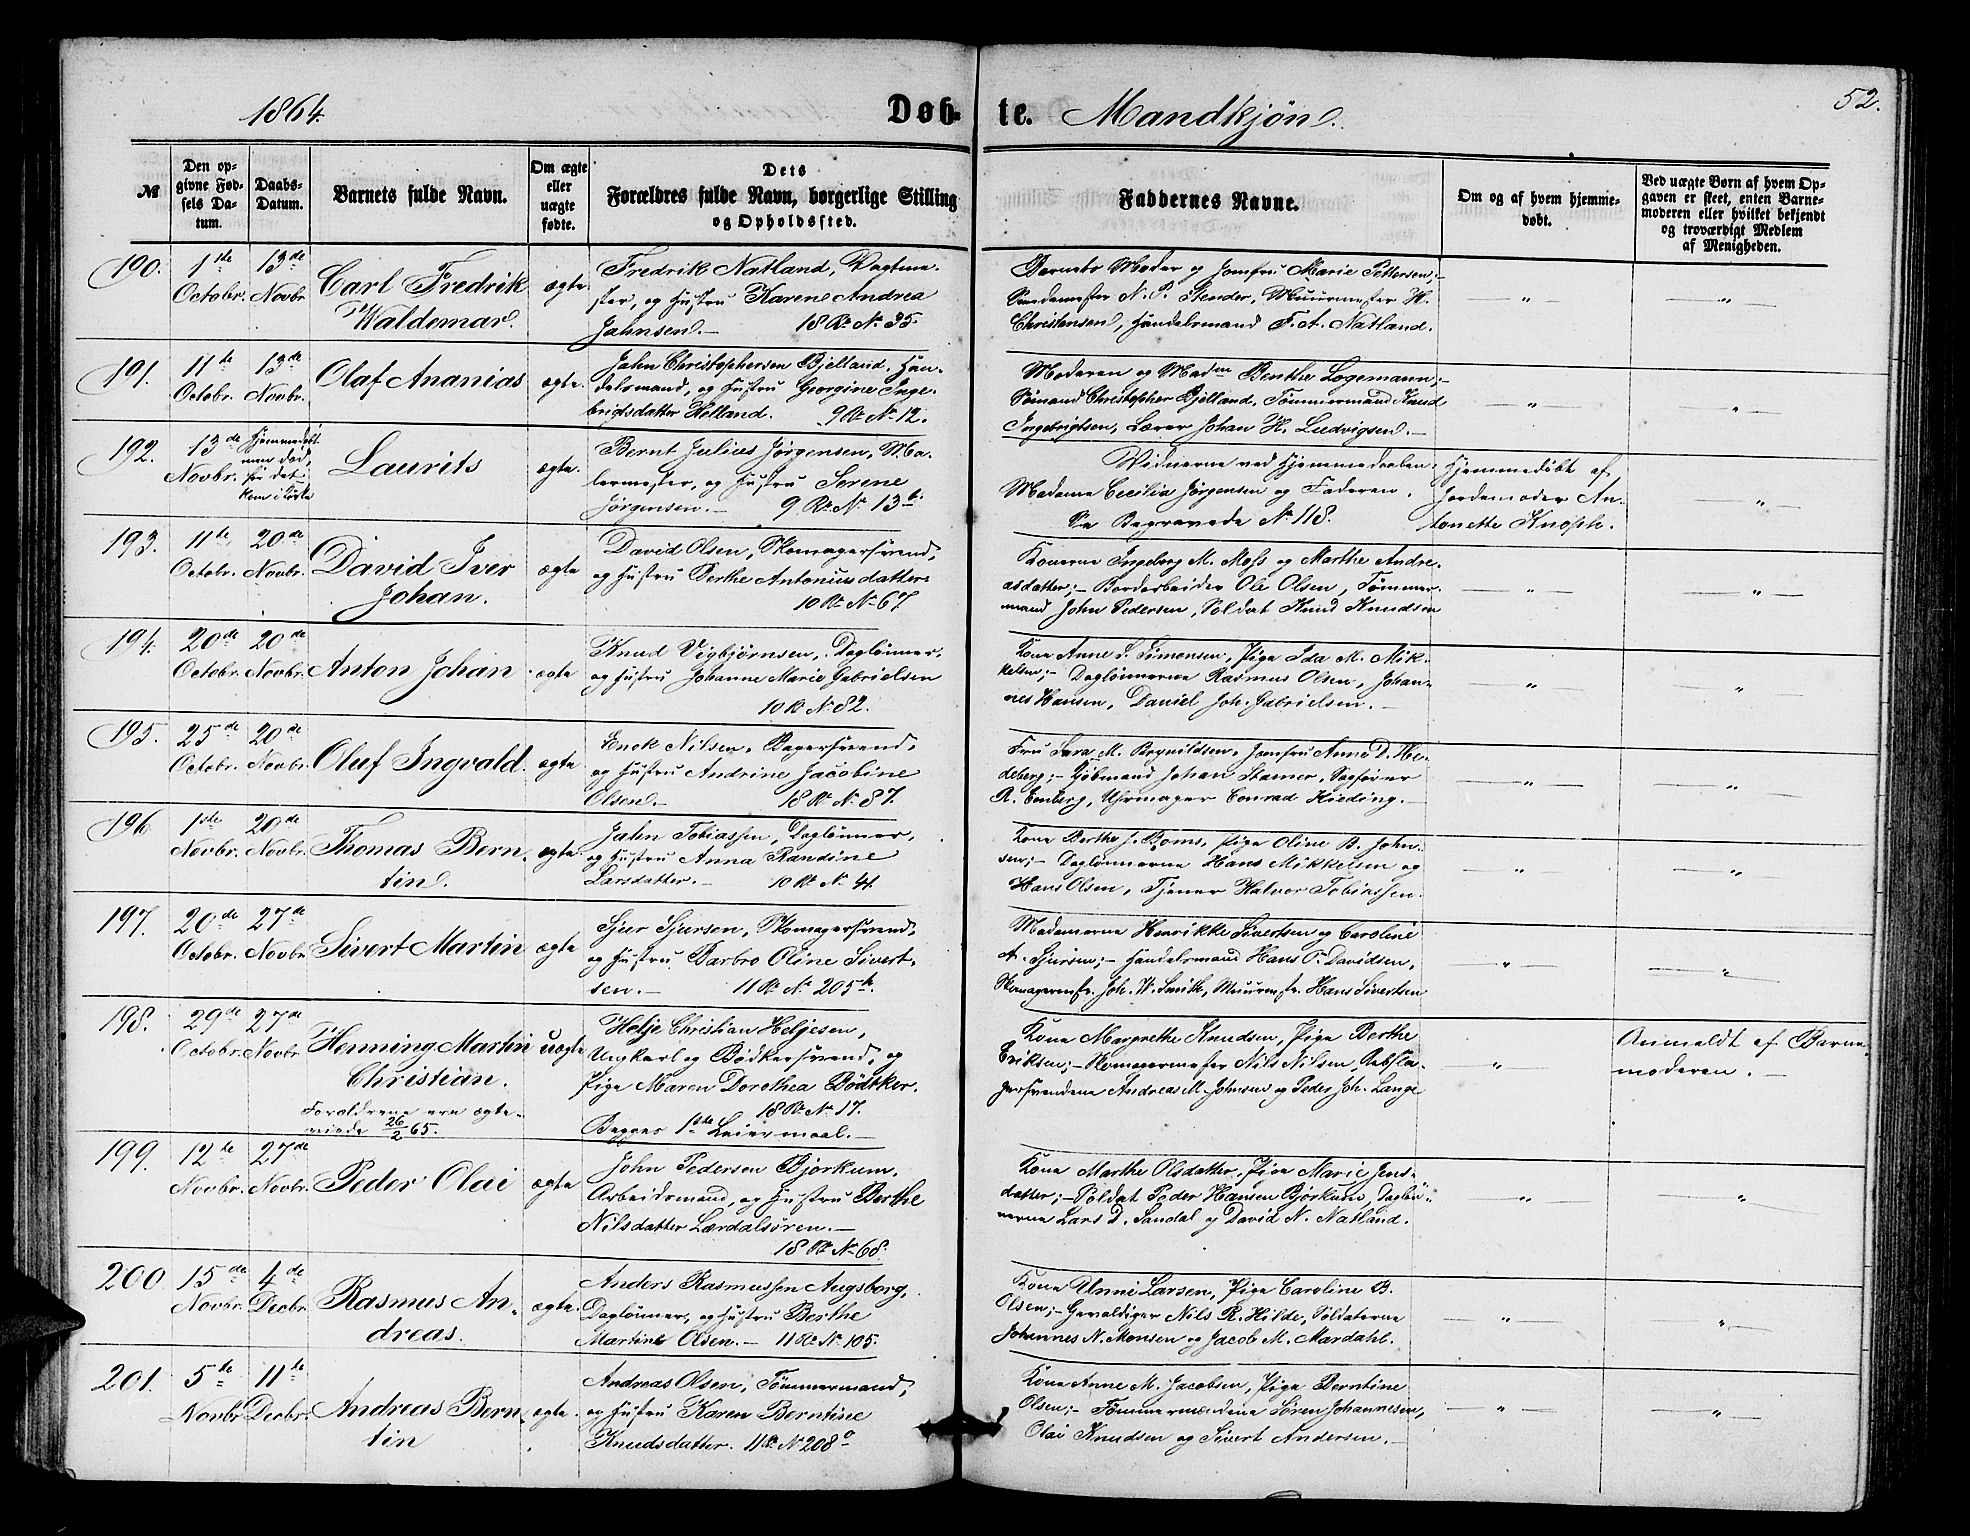 1864.
Døb-
te. Mandkjøn.
52.
№
Den op-
givne Fød-
sels Da-
tum.
Daabs-
Datum.
Barnets fulde Navn.
Om ægte
eller
uægte
fødte.
Dets
Forældres fulde Navn, borgerlige Stilling
og Opholdssted.
Faddernes Navne.
Om og af hvem hjemme-
døbt.
Ved uægte Børn af hvem Op-
gaven er skeet, enten Barne-
moderen eller hvilket bekjendt
og troværdigt Medlem
af Menigheden.
190.
1ste
Octobr.
13de
Novbr.
Carl Fredrik
Waldemar.
ægte
Fredrik Natland, Vagtme-
ster, og Hustru Karene Andrea
Jahnsen.— 18 Rt. N. 35.
Barnets Moder og Jomfru Marie Pettersen;-
N. P. Stender, Muurmester H.
Christensen, Handelsmand F. A. Natland.
191.
11te
Octobr.
13de
Novbr.
Olaf Ananias
ægte.
Jahn Christophersen Bjelland, Han-
delsmand, og Hustru Georgine Inge-
brigtsdatter Helland. 9 Rt. N. 12.
Moderen og Madm Benthe Logemann;-
Sømand Christopher Bjelland, Tømmermand Knud
Ingebrigtsen, Lærer Johan H. Ludvigsen.—
192.
13de
Novbr.
Hjemmedøbt
men død,
før det
kom i Kirke
Laurits
ægte.
Bernt Julius Jørgensen, Ma-
lermester, og Hustru Serene
Jørgensen.— 9 Rt. N. 13b.
Vidnerne ved Hjemmedaaben:
Madame Cecilia Jørgensen og Faderen.
Se Begravede N. 118.
Hjemmedøbt af
Jordemoder An-
tonette Knoph.
193.
11te
Octobr.
20de
Novbr.
David Iver
Johan.
ægte
David Olsen, Skomagersvend,
og Hustru Berthe Antoniusdatter
10 Rt. N. 67
Konerne Ingeborg M. Moss og Marthe Andre-
asdatter;- Bordarbeider Ole Olsen, Tømmer-
mand John Pedersen, Soldat Knud Knudsen
194.
20de
Octobr.
20de
Novbr.
Anton Johan
ægte
Knud Vigbjørnsen, Daglønner,
og Hustru Johanne Marie Gabrielsen
10 Rt. N. 82.
Kone Anne S. Simonsen, Pige Ida M. Mik-
kelsen;- Daglønnerne Rasmus Olsen, Johan-
nes Hansen, Daniel Joh. Gabrielsen.—
195.
25de
Octobr.
20de
Novbr.
Oluf Ingvald.
ægte
Enok Nilsen, Bagersvend,
og Hustru Andrine Jacobine
Olsen.— 18 Rt. N. 87.
Fru Sara M. Brynildsen, Jomfru Anne D. He-
deberg;- Kjøbmand Johan Stamer, Sagfører
R. Enberg, Uhrmager Conrad Kieding.—
196
1ste
Novbr.
20de
Novbr.
Thomas Bern-
tin.
ægte.
Jahn Tobiassen, Daglønner,
og Hustru Anna Randine
Larsdatter.— 10 Rt. N. 41.
Kone Berthe J. Boms, Pige Oline B. John-
sen;- Daglønnerne Hans Mikkelsen og
Hans Olsen, Tjener Halvor Tobiassen.
197.
20de
Octobr.
27de
Novbr
Sivert Martin
ægte
Sjur Sjursen, Skomagersvend,
og Hustru Barbro Oline Sivert-
sen.— 11 Rt. N. 205
Madamerne Henrikke Sivertsen og Caroline
A. Sjursen;- Handelsmand Hans P. Davidsen,
Skomagermstr. Joh. W. Smith, Muurmstr. Hans Sivertsen
198.
29de
Octobr.
27de
Novbr.
Henning Martin
Christian.
Forældrene ere ægte-
viede 26/2 65.
uægte
Helje Christian Heljesen,
Ungkarl og Bødkersvend, og
Pige Maren Dorothea Bödtker.
18 Rt. N. 17.
Begges 1ste Leiermaal.—
Kone Margrethe Knudsen, Pige Berthe
Eriksen;- Skomagermester Nils Nilsen, Rebsla-
gersvendene Andreas M. Johnsen og Peder Joh. Lange
Anmeldt af Barne-
moderen.—
199.
12te
Novbr.
27de
Novbr.
Peder Olai
ægte
John Pedersen Bjorkum,
Arbeidsmand, og Hustru Berthe
Nilsdatter Lærdalsøren.—
18 Rt. N. 68.
Kone Marthe Olsdatter, Pige Marie Jens-
datter;- Soldat Peder Hansen Bjorkum, Dagløn-
nerne Lars D. Sandal og David N. Natland.
200
15de
Novbr.
4de
Decbr.
Rasmus An-
dreas.
ægte.
Anders Rasmussen Augsborg,
Daglønner, og Hustru Berthe
Martine Olsen.— 11 Rt. N. 105.
Kone Unni Larsen, Pige Caroline B.
Olsen;- Gevaldiger Nils R. Hilde, Soldaterne
Johannes N. Monsen og Jacob M. Mardahl.
201.
5te
Novbr
11te
Decbr.
Andreas Bern-
tin
ægte.
Andreas Olsen, Tømmermand,
og Hustru Karen Berntine
Knudsdatter. 11 Rt. N. 208
Kone Anne M. Jacobsen, Pige Berntine
Olsen;- Tømmermændene Søren Johannesen,
Olai Knudsen og Sivert Andersen.—